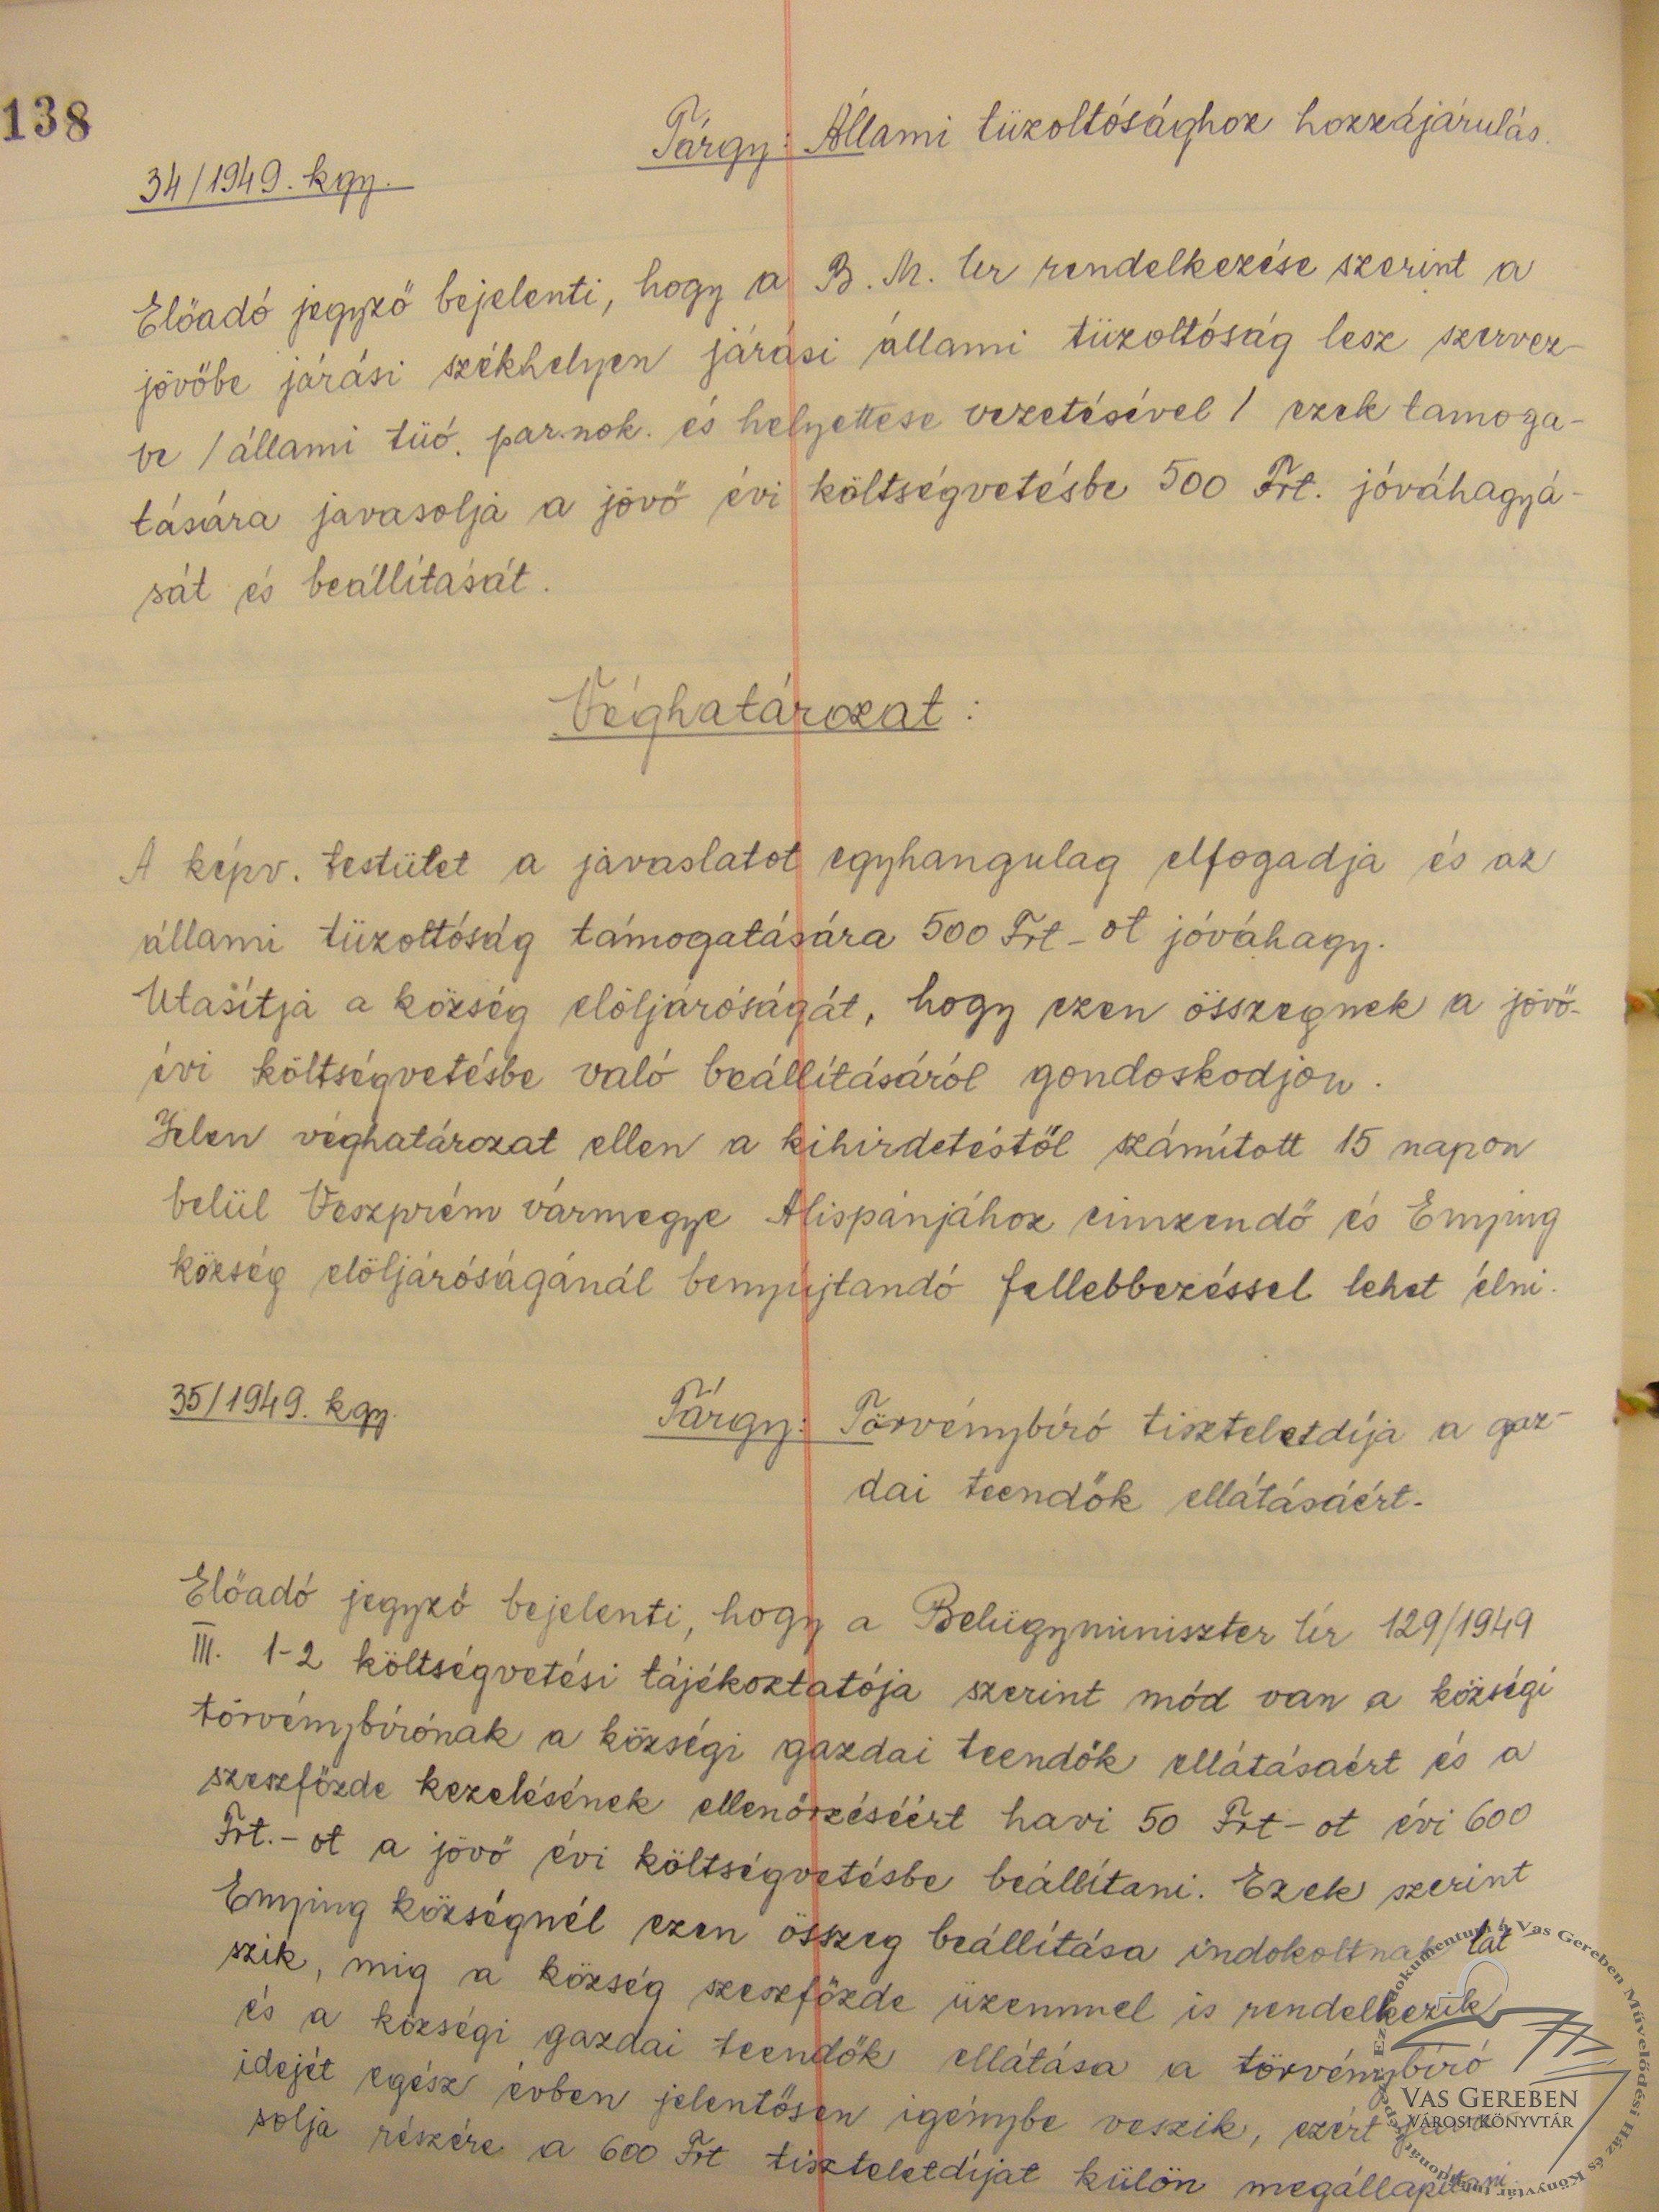 138
Tárgy: Állami tüzoltósághoz hozzájárulás.
34/1949. kgy.
Előadó jegyző bejelenti, hogy a B. M. Úr rendelkezése szerint a
jövőbe járási székhelyen járási állami tüzoltóság lesz szervez-
ve /állami tüó. par.nok. és helyettese vezetésével/ ezek tamoga-
tására javasolja a jövő évi költségvetésbe 500 Frt. jóváhagyá-
sát és beállítását.
Véghatározat:
A képv. testület a javaslatot egyhangulag elfogadja és az
állami tüzoltóság támogatására 500 Frt-ot jóváhagy.
Utasítja a község elöljáróságát, hogy ezen összegnek a jövő-
évi költségvetésbe való beállításáról gondoskodjon.
Jelen véghatározat ellen a kihirdetéstől számított 15 napon
belül Veszprém vármegye Alispánjához cimzendő és Enying
község elöljáróságánál benyújtandó fellebbezéssel lehet élni.
35/1949. kgy.
Tárgy: Törvénybíró tiszteletdíja a gaz-
dai teendők ellátásáért.
Előadó jegyző bejelenti, hogy a Belügyminiszter Úr 129/1949
III. 1-2 költségvetési tájékoztatója szerint mód van a községi
törvénybírónak a községi gazdai teendők ellátásaért és a
szeszfőzde kezelésének ellenőrzéséért havi 50 Frt-ot évi 600
Frt.-ot a jövő évi költségvetésbe beállítani. Ezek szerint
Enying községnél ezen összeg beállítása indokoltnak lát-
szik, mig a község szeszfőzde üzemmel is rendelkezik
és a községi gazdai teendők ellátása a törvénybíró
idejét egész évben jelentősen igénybe veszik, ezért java-
solja részére a 600 Frt tiszteletdíjat külön megállapítani
Ez a dokumentum a Vas Gereben Művelődési Ház és Könyvtár tulajdonát képezi
VAS GEREBEN
VÁROSI KÖNYVTÁR